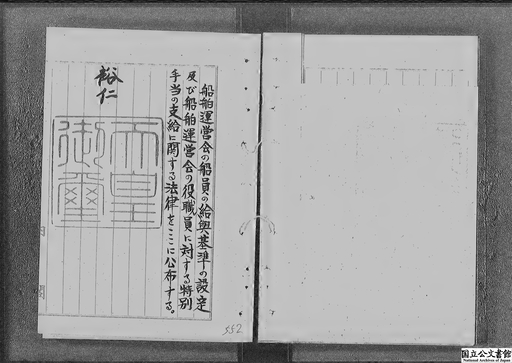 船舶運営会の船員の給與基準の設定
及び船舶運営会の役職員に対する特別
手当の支給に関する法律をここに公布する。
裕仁
天皇
御璽
552
国立公文書館
National Archives of Japan